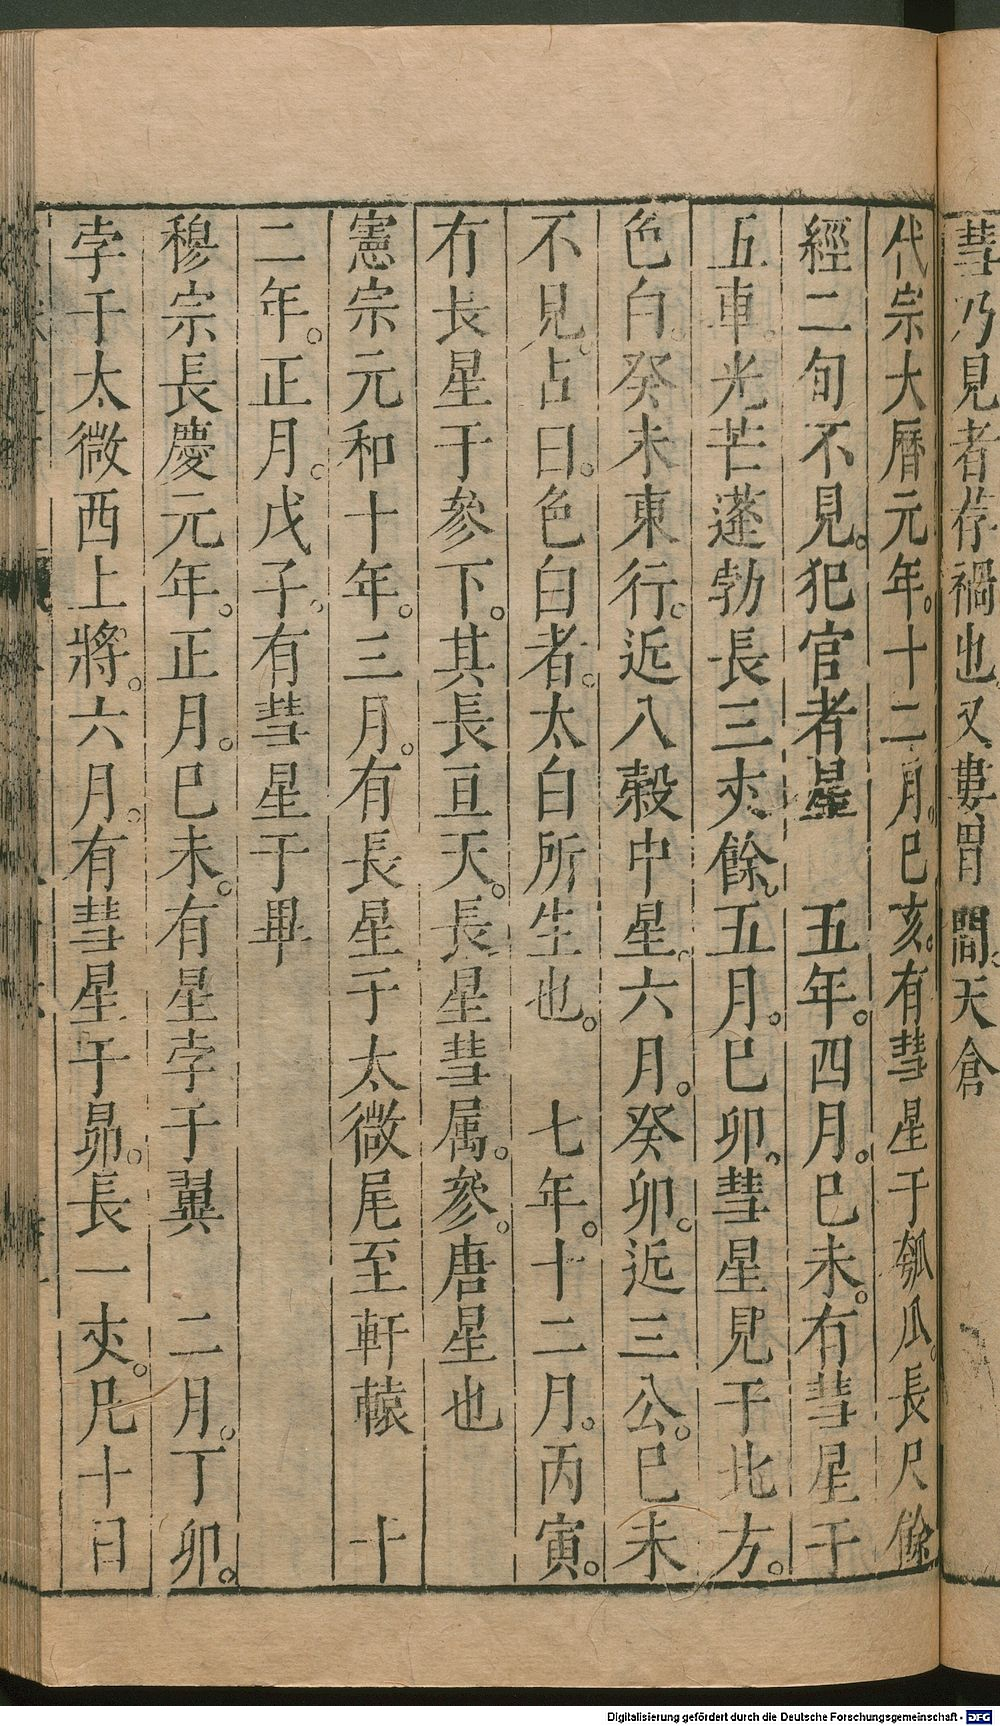 彗乃見者存禍也又婁胃間天倉
代宗大曆元年十二月巳亥有彗星于瓠瓜長尺餘
經二旬不見犯官者星　五年四月巳未有彗星于
五車光芒蓬勃長三丈餘五月巳卯彗星見于北方
色白癸未東行近八榖中星六月癸卯近三公巳未
不見占曰色白者太白所生也　七年十二月丙寅
有長星于參下其長亘天長星彗属參唐星也
憲宗元和十年三月有長星于太微尾至軒轅　十
二年正月戊子有彗星于畢
穆宗長慶元年正月巳未有星孛于翼　二月丁卯
孛于太微西上將六月有彗星于昴長一丈凡十日
Digitalisierung gefördert durch die Deutsche Forschungsgemeinschaft - DFG